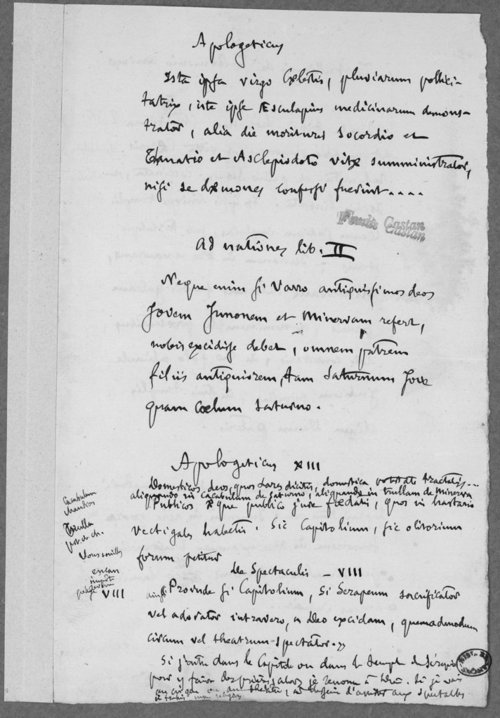 Apologeticus
Ista ipsa virgo Cælestis, pluviarum pollici-
tatrix, iste ipse Æsculapius medicinarum demons-
trator, alia die morituris Socordio et
Thanatio et Asclepiodoto vitæ sumministrator,
nisi se dæmones confessi fuerint....
Castan
Ad nationes lib. II
Neque enim si Varro antiquissimos deos
Jovem Junonem et Minervam refert,
nobis excidisse debet, omnem patrem
filiis antiquiorem, tam Saturnum Jove
quam Cœlum Saturno.
Apologeticus XIII
Domesticos deos, quos Lares dicitis, domestica potestate tractatis...
aliquando in cacabulum de Saturno, aliquando in trullam de Minerva
Publicos æque publico jure fœdatis, quos in hastario
vectigales habetis. Sic Capitolium, sic olitorium
forum petitur
Cacabulum
chaudron
Trulla
pot de ch.
Vous souillez
encan
De Spectaculis – VIII
VIII
Proinde si Capitolium, si Serapeum sacrificator
vel adorator intravero, a Deo excidam, quemadmodum
circum vel theatrum spectator.»
Si j'entre dans le Capitole ou dans le temple de Sérapis
pour y faire des prières, je renonce à Dieu. Si je vais
au cirque ou au théâtre, aux spectacles